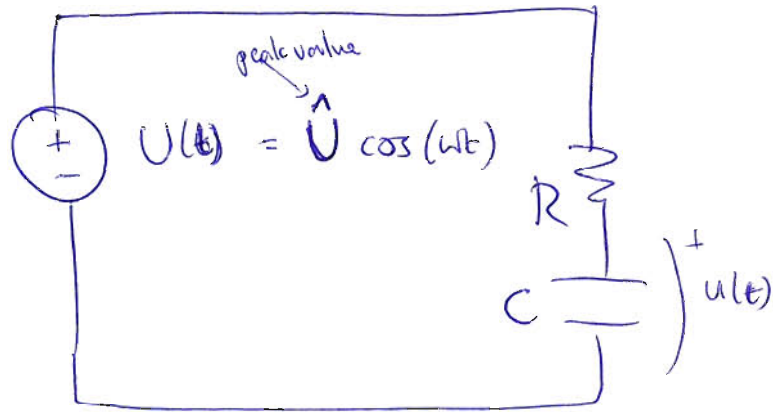 peak value
+
-
U(t) = Û cos(ωt)
R
C
+
u(t)